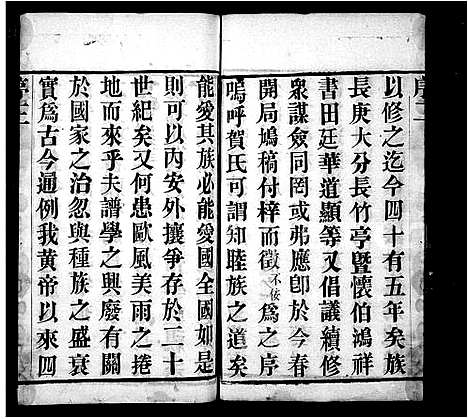 以修之迄今四十有五年矣族
長庚大分長竹亭暨懷伯鴻祥
書田廷華道顯等又倡議續修
衆謀僉同罔或弗應卽於今春
開局鳩稿付梓而徵不佞爲之序
嗚呼賀氏可謂知睦族之道矣
能愛其族必能愛國全國如是
則可以內安外攘爭存於二十
世紀矣又何患歐風美雨之捲
地而來乎夫譜學之興廢有關
於國家之治忽與種族之盛衰
實爲古今通例我黃帝以來四